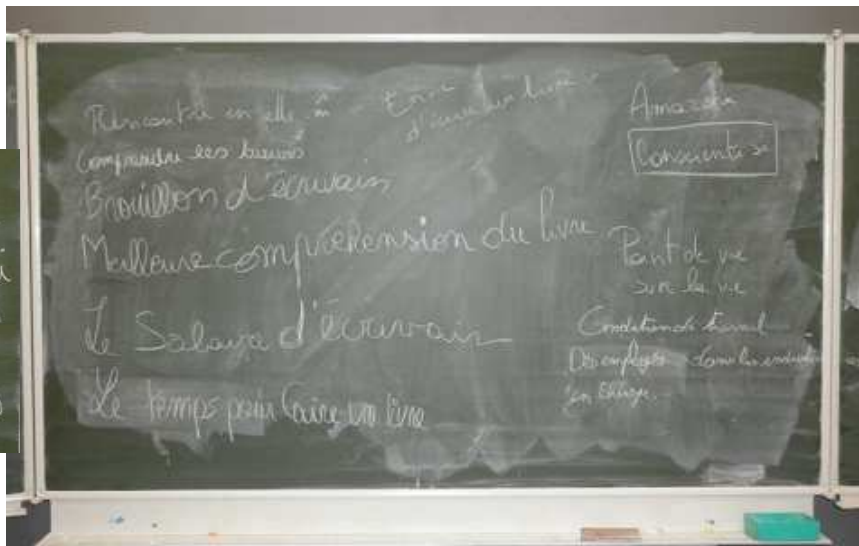 Rencontre en elle m̂
Comprendre les
Brouillon d'écrivain
Meilleure compréhension du livre
Le Salaire d'écrivain
Le temps pour faire un livre
Envie
d'écrire un livre
Amazon
Point de vue
sur la vie
Condition de travail
Des employés dans les
en